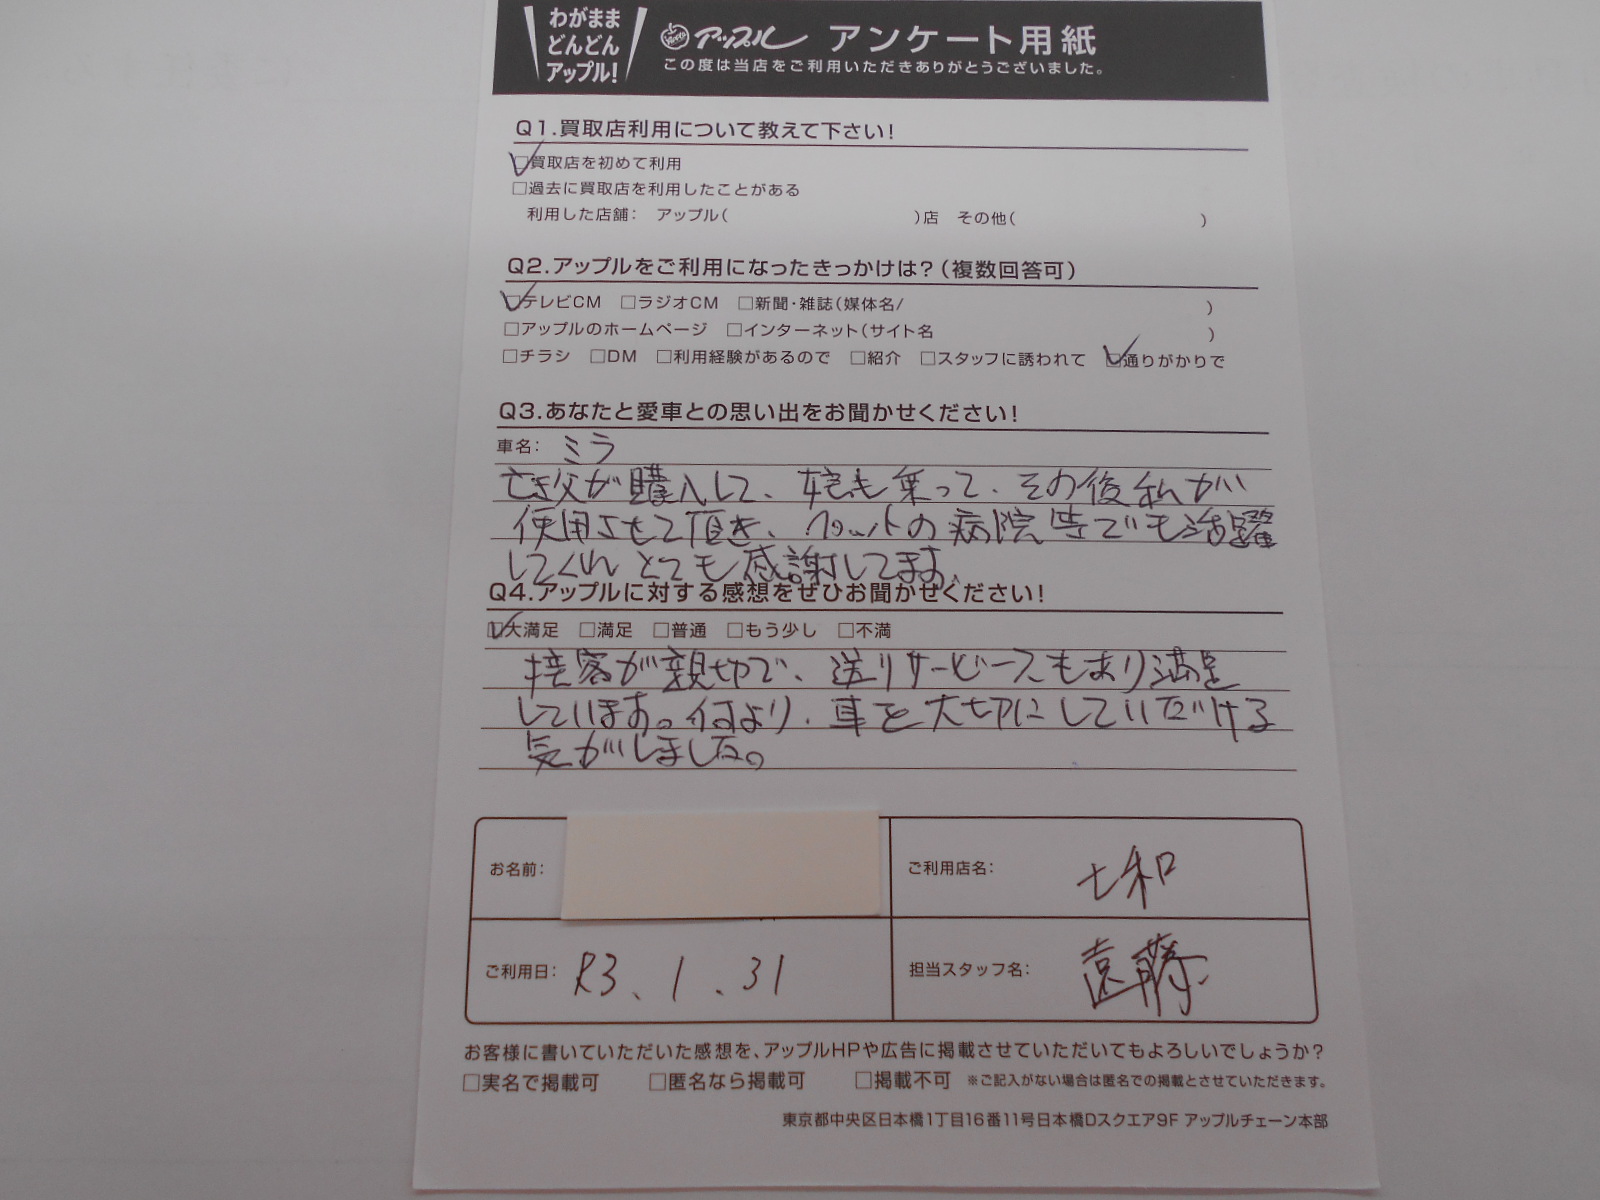 わがまま
どんどん
アップル!
アップル アンケート用紙
この度は当店をご利用いただきありがとうございました。
Q1.買取店利用について教えて下さい!
☑買取店を初めて利用
□過去に買取店を利用したことがある
利用した店舗: アップル( )店 その他( )
Q2.アップルをご利用になったきっかけは?(複数回答可)
☑テレビCM □ラジオCM □新聞・雑誌(媒体名/ )
□アップルのホームページ □インターネット(サイト名 )
□チラシ □DM □利用経験があるので □紹介 □スタッフに誘われて ☑通りがかりで
Q3.あなたと愛車との思い出をお聞かせください!
車名: ミラ
亡き父が購入して、姉も乗って、その後私が
使用させて頂き、ペットの病院等でも活躍
してくれとても感謝してます。
Q4.アップルに対する感想をぜひお聞かせください!
☑大満足 □満足 □普通 □もう少し □不満
接客が親切で、送りサービスもあり満足
しています。何より、車を大切にしていただける
気がしました。
お名前:
ご利用店名: 七和
ご利用日: R3.1.31
担当スタッフ名: 遠藤
お客様に書いていただいた感想を、アップルHPや広告に掲載させていただいてもよろしいでしょうか?
□実名で掲載可 □匿名なら掲載可 □掲載不可 ※ご記入がない場合は匿名での掲載とさせていただきます。
東京都中央区日本橋1丁目16番11号日本橋Dスクエア9F アップルチェーン本部